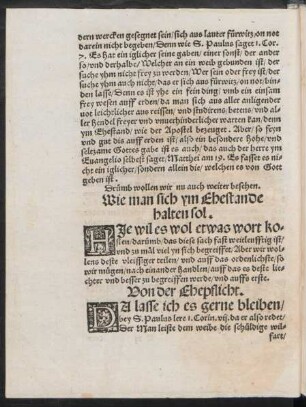 dern wercken gesegnet sein/sich aus lauter fürwitz/on not
darein nicht begeben/Denn wie S. Paulus saget 1. Cor.
7. Es hat ein iglicher seine gaben/einer sonst/der ander
so/vnd derhalbe/Welcher an ein weib gebunden ist/der
suche yhm nicht frey zu werden/Wer sein oder frey ist/der
suche yhm auch nicht/das er sich aus fürwitz/on not/bin-
den lasse/Denn es ist yhe ein fein ding/vmb ein einsam
frey wesen auff erden/da man sich aus aller anligender
not leichtlicher aus reissen/vnd sindtens/betens/vnd al-
ler hendel freyer vnd vnuerhinderlicher warten kan/denn
ym Ehestand/wie der Apostel bezeuget. Aber/so feyn
vnd gut dis auff erden ist/also ein besondere hohe/vnd
seltzame Gottes gabe ist es auch/das auch der herre ym
Euangelio selbest saget/Matthei am 19. Es fasset es nicht
nicht ein iglicher/sondern allein die/welchen es von Gott
geben ist.
Drumb wollen wir nu auch weiter besehen.
Wie man sich ym Ehestande
halten sol.
HJe wil es wol etwas wort ko-
sten/darumb/das diese sach fast weitleufftig ist/
vnd zu mal viel yn sich begreiffet/Aber wir wol-
lens deste vleissiger teilen/vnd auff das ordenlichste/so
wir mügen/nach einander handlen/auff das es deste liech-
ter vnd besser zu begreiffen werde/vnd auffs erste.
Von der Ehepflicht.
DA lasse ich es gerne bleiben/
bey S. Paulus lere 1. Corin. vij. da er also redet/
Der Man leiste dem weibe die schüldige wil-
fart/